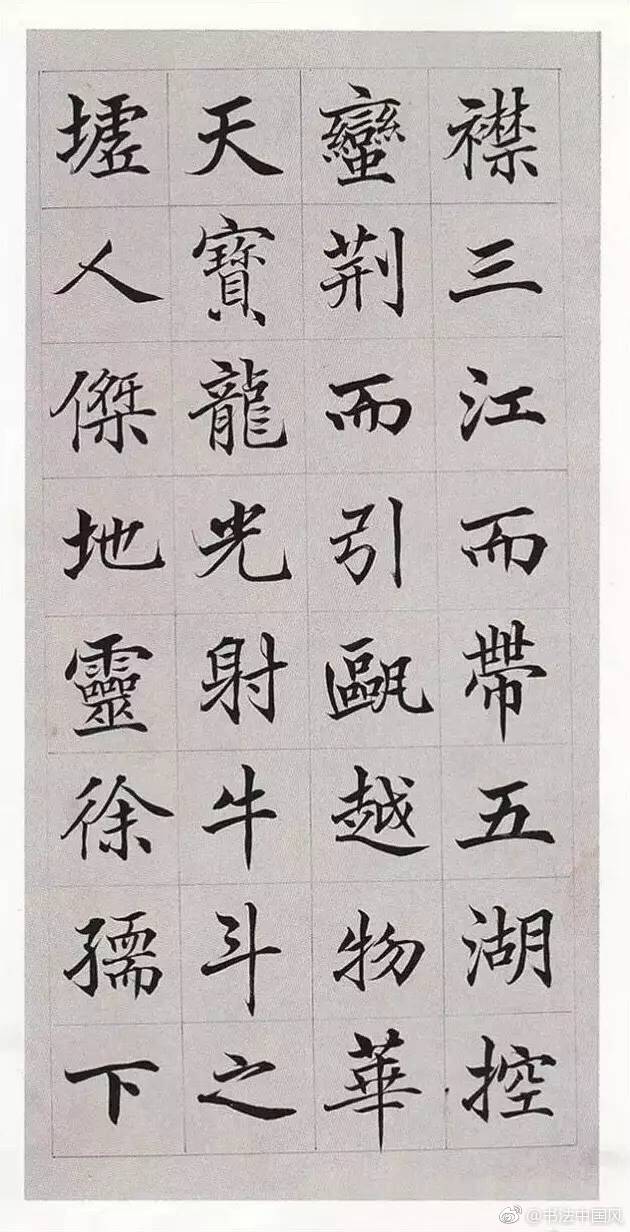 襟三江而帶五湖控
蠻荆而引甌越物華
天寶龍光射牛斗之
墟人傑地靈徐孺下
@书法中国风